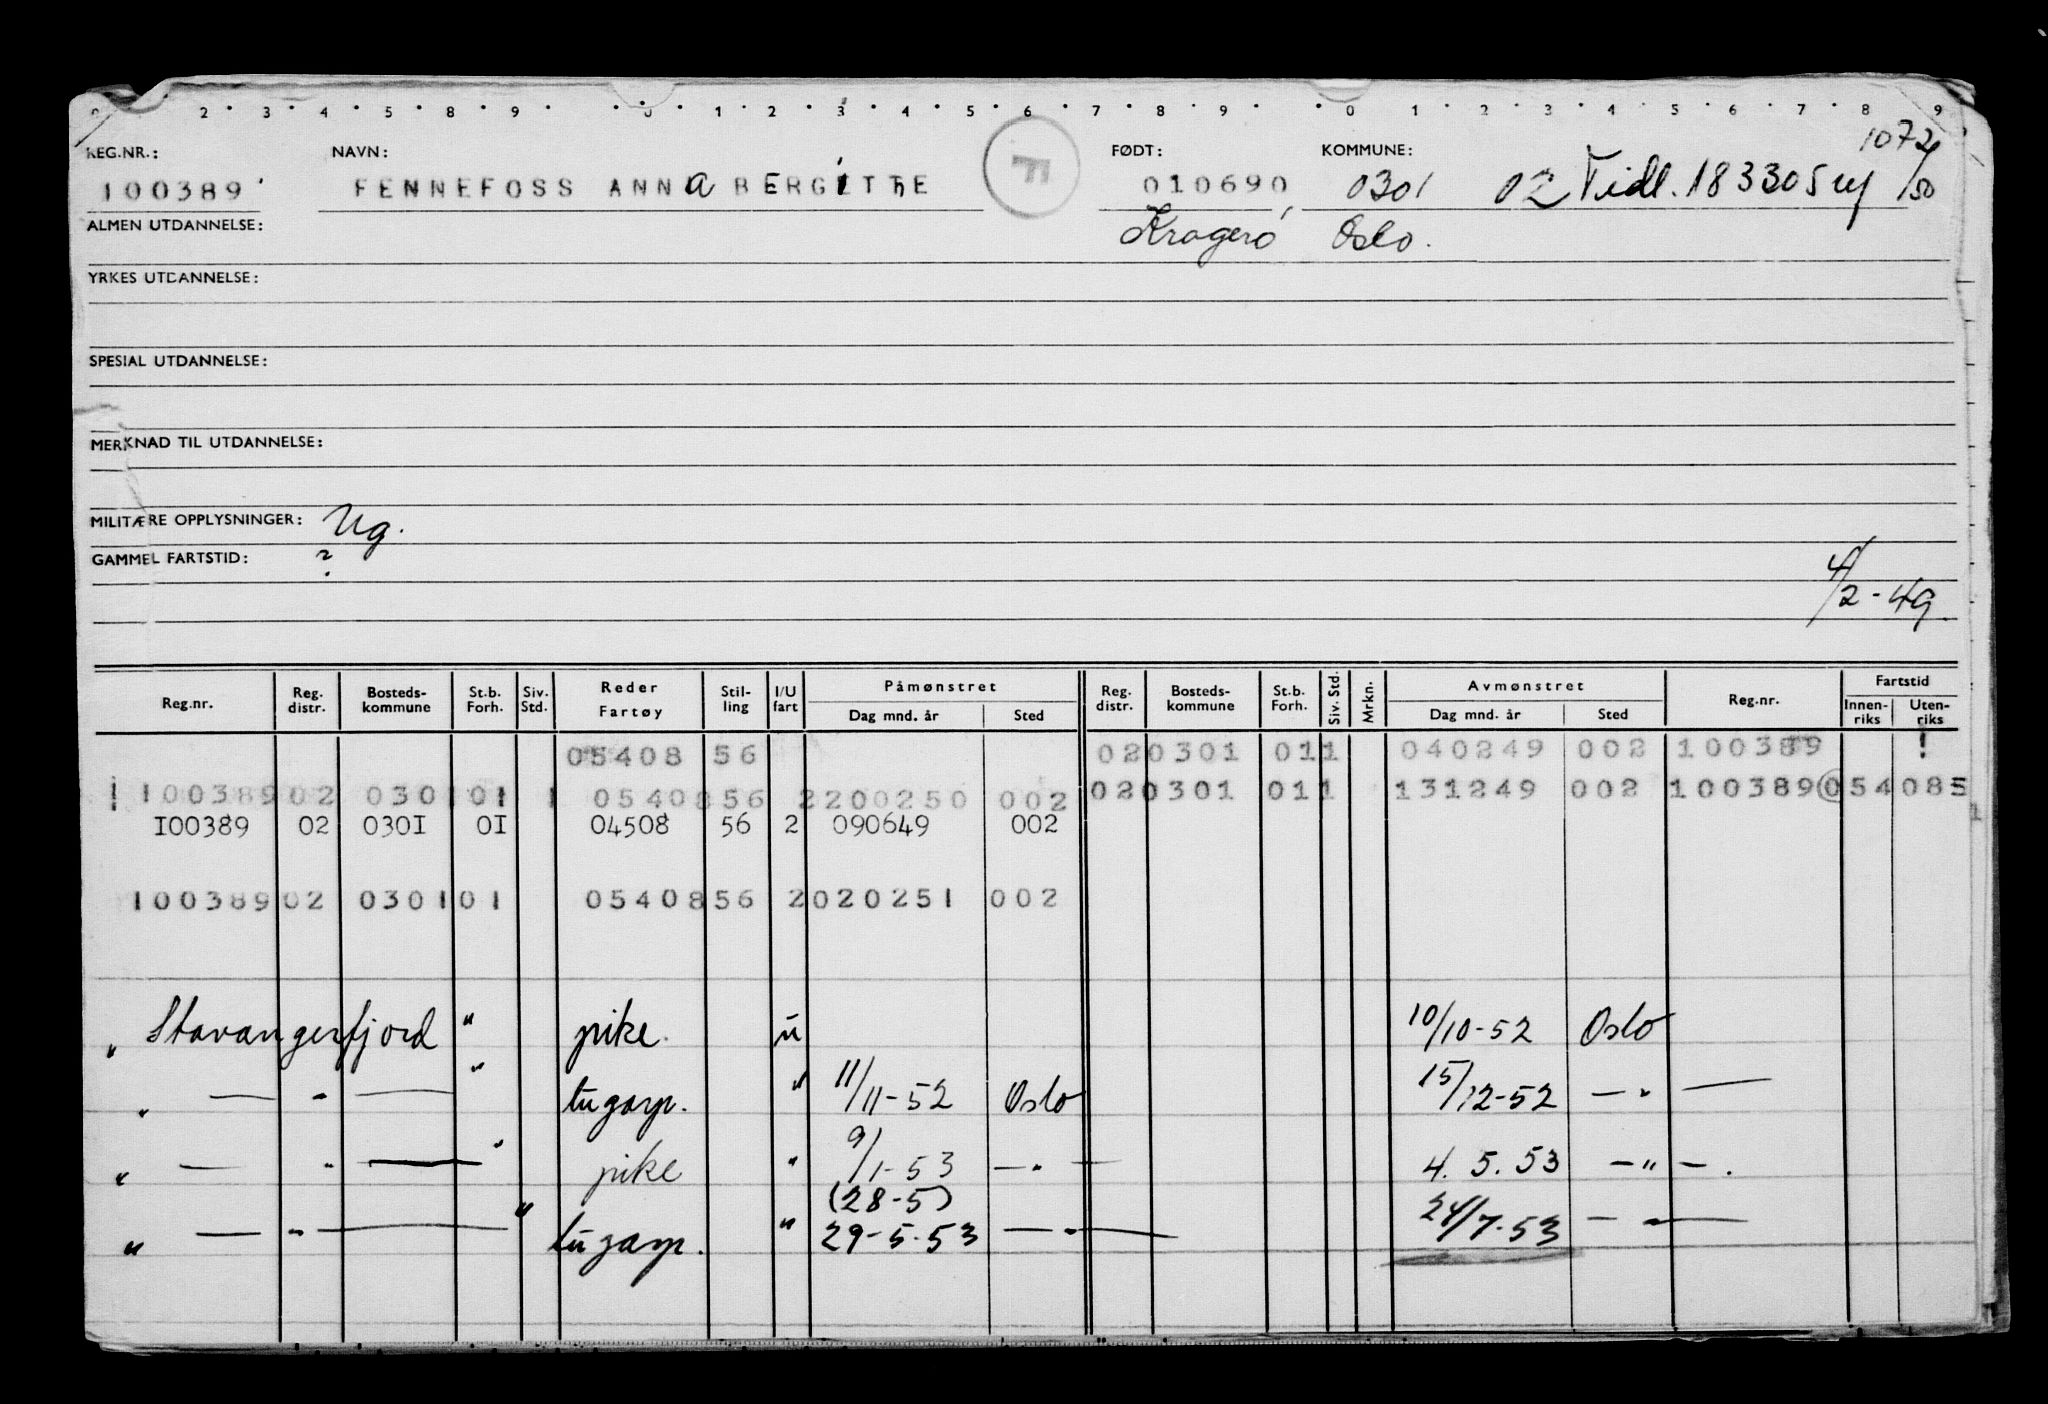 2 3 4 5 8 9 0 1 2 3 4 5 6 7 8 9 0 1 2 3 4 5 6 7 8 9
1072/50
REG.NR.: NAVN: F FØDT: KOMMUNE:
100389 FENNEFOSS ANNa BERGITHE 010690 0301 02 Tidl. 183305
ALMEN UTDANNELSE: Kragerö Oslo.
YRKES UTDANNELSE:
SPESIAL UTDANNELSE:
MERKNAD TIL UTDANNELSE:
MILITÆRE OPPLYSNINGER: Ug.
GAMMEL FARTSTID: ?
4/2-49
Reg.nr. Reg. distr. Bosteds-kommune St.b. Forh. Siv. Std. Reder Fartøy Stil-ling I/U fart Påmønstret Dag mnd. år Sted Reg. distr. Bosteds-kommune St.b. Forh. Siv. Std. Mrkn. Avmønstret Dag mnd. år Sted Reg.nr. Fartstid Innen-riks Uten-riks
05408 56 02 0301 011 040249 002 100389 !
! 100389 02 0301 01 1 05408 56 2 200250 002 02 0301 011 131249 002 100389 054 085
I00389 02 030I 0I 04508 56 2 090649 002
100389 02 0301 01 05408 56 2 020251 002
" Stavangerfjord " pike. u 10/10-52 Oslo
" — " — " tugarp. " 11/11-52 Oslo 15/12-52 — " —
" — " — " pike " 9/1-53 — " — 4. 5. 53 — " — .
(28-5)
" — " — " tugarp. " 29-5-53 — " — 24/7-53 — " —